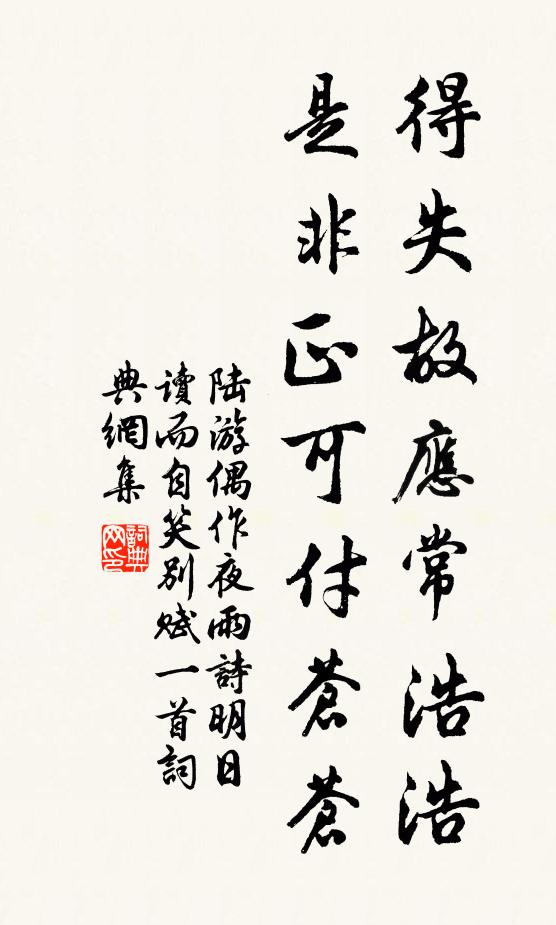 得失故應常浩浩
是非正可付蒼蒼
陸游偶作夜雨詩明日
讀而自笑別賦一首詞
典網集
詞典網印